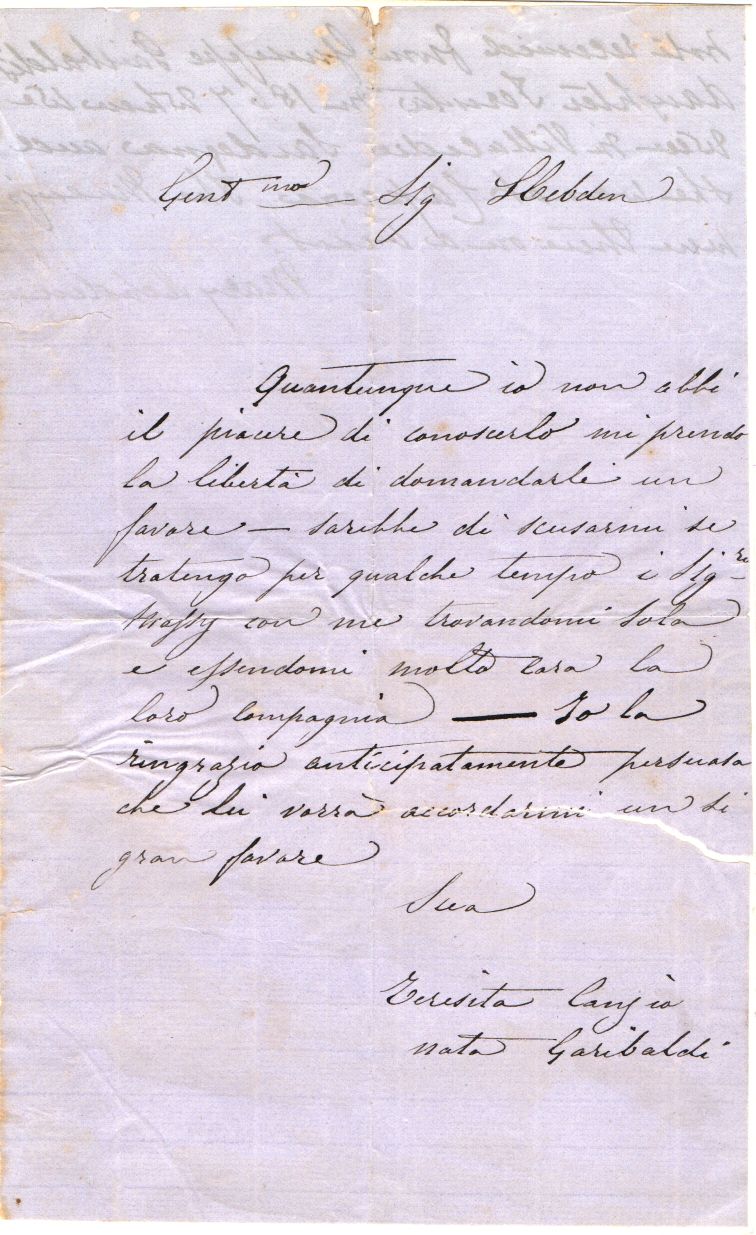 Gent mo Sig Hebden
Quantunque io non abbi
il piacere di conoscerlo mi prendo
la libertà di domandarle un
favore — sarebbe di scusarmi se
tratengo per qualche tempo i Sig ri
con me trovandomi sola
e essendomi molto cara la
loro compagnia — Io la
ringrazio anticipatamente persuasa
che Lei vorrà accordarmi un si
gran favore
Sua
Teresita Canzio
nata Garibaldi